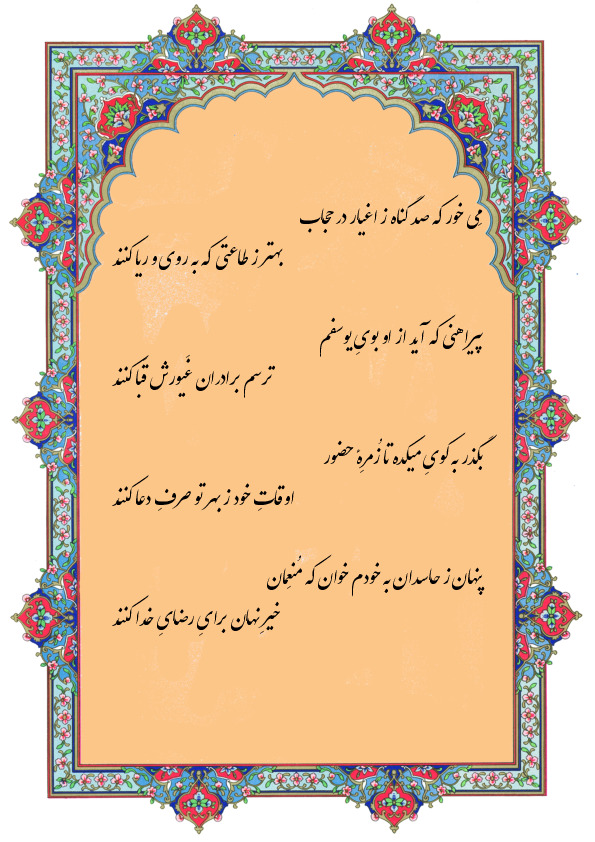 مِی خور که صد گناه ز اغیار در حجاب
بهتر ز طاعتی که به روی و ریا کنند
پیراهنی که آید از او بویِ یوسفم
ترسم برادران غَیورش قبا کنند
بگذر به کویِ میکده تا زُمرِهٔ حضور
اوقاتِ خود ز بهر تو صرفِ دعا کنند
پنهان ز حاسدان به خودم خوان که مُنعِمان
خیرِ نهان برایِ رضایِ خدا کنند